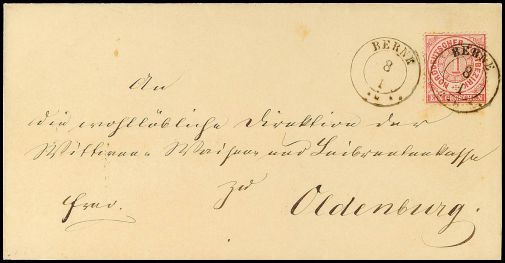 BERNE
8
1
NORDDEUTSCHER
1
BERNE
8
1
An
die wohllöbliche Direktion der
Wittwen- Waisen- und Leibrentenkasse
zu
frco. Oldenburg.